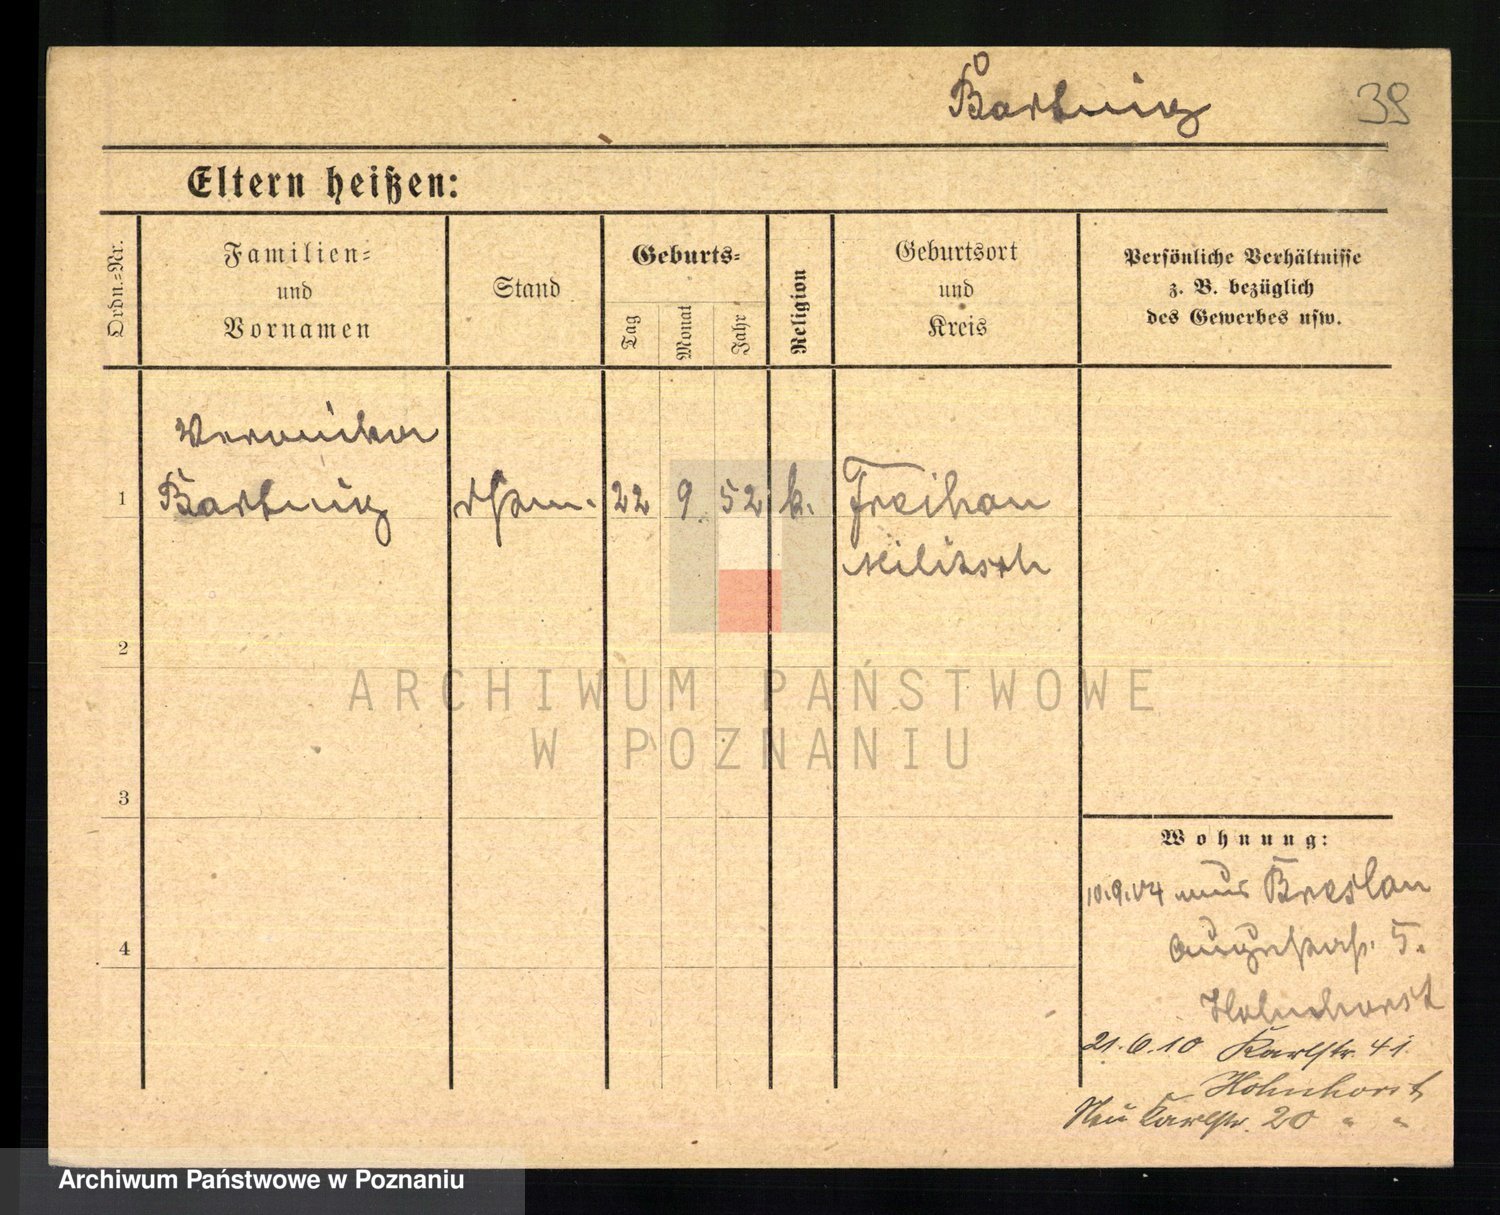 Bartnig
39
Eltern heißen:
Ordn.=Nr.
Familien=
und
Vornamen
Stand
Geburts=
Tag
Monat
Jahr
Religion
Geburtsort
und
Kreis
Persönliche Verhältnisse
z. B. bezüglich
des Gewerbes usw.
Veronika
1 Bartnig 22 9. 52 k. Freihan
Militsch
2
3
4
Wohnung:
10.9.04 aus Breslau
5.
Hohnhorst
21.6.10 Karlstr. 41.
Hohnhorst
Neu Karlstr. 20 " "
ARCHIWUM PAŃSTWOWE
W POZNANIU
Archiwum Państwowe w Poznaniu